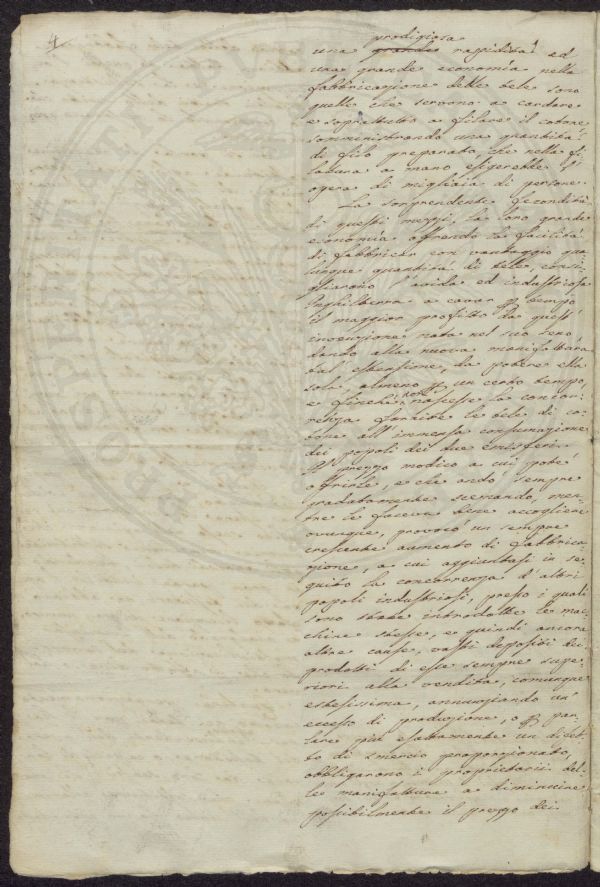 4
prodigiosa
una grande rapidità, ed
una grande economia nella
fabbricazione delle tele sono
quelle che servono a cardare
e soprattutto a filare il cotone
somministrando una quantità
di filo preparato, che nella fi-
latura a mano esigerebbe l'
opera di migliaia di persone.
La sorprendente fecondità
di questi mezzi, la loro grande
economia offrendo la facilità
di fabbricar con vantaggio qua-
lunque quantità di tele, consi-
gliarono l'avida ed industriosa
Inghilterra a cavar per tempo
il maggior profitto da quest'
invenzione nata nel suo seno
dando alla nuova manifattura
tal estensione, da potere ella
sola, almeno per un certo tempo,
e finché non nascesse la concor-
renza fornire le tele di co-
tone all'immensa consumazione
dei popoli dei due emisferi.
Il prezzo modico a cui poté
offrirle, e che andò sempre
gradatamente scemando, men-
tre le faceva bene accogliere
ovunque, provocò un sempre
crescente aumento di fabbrica-
zione, a cui aggiuntasi in se-
guito la concorrenza d'altri
popoli industriosi, presso i quali
sono state introdotte le mac-
chine stesse, e quindi ancora
altre cause, vasti depositi dei
prodotti di esse sempre supe-
riori alla vendita, comunque
estesissima, annunziando un'
eccesso di produzione, o per par-
lare più esattamente un difet-
to di smercio proporzionato,
obbligarono i proprietarii del-
le manifatture a diminuire
possibilmente il prezzo dei
PROSPERITATI PUB